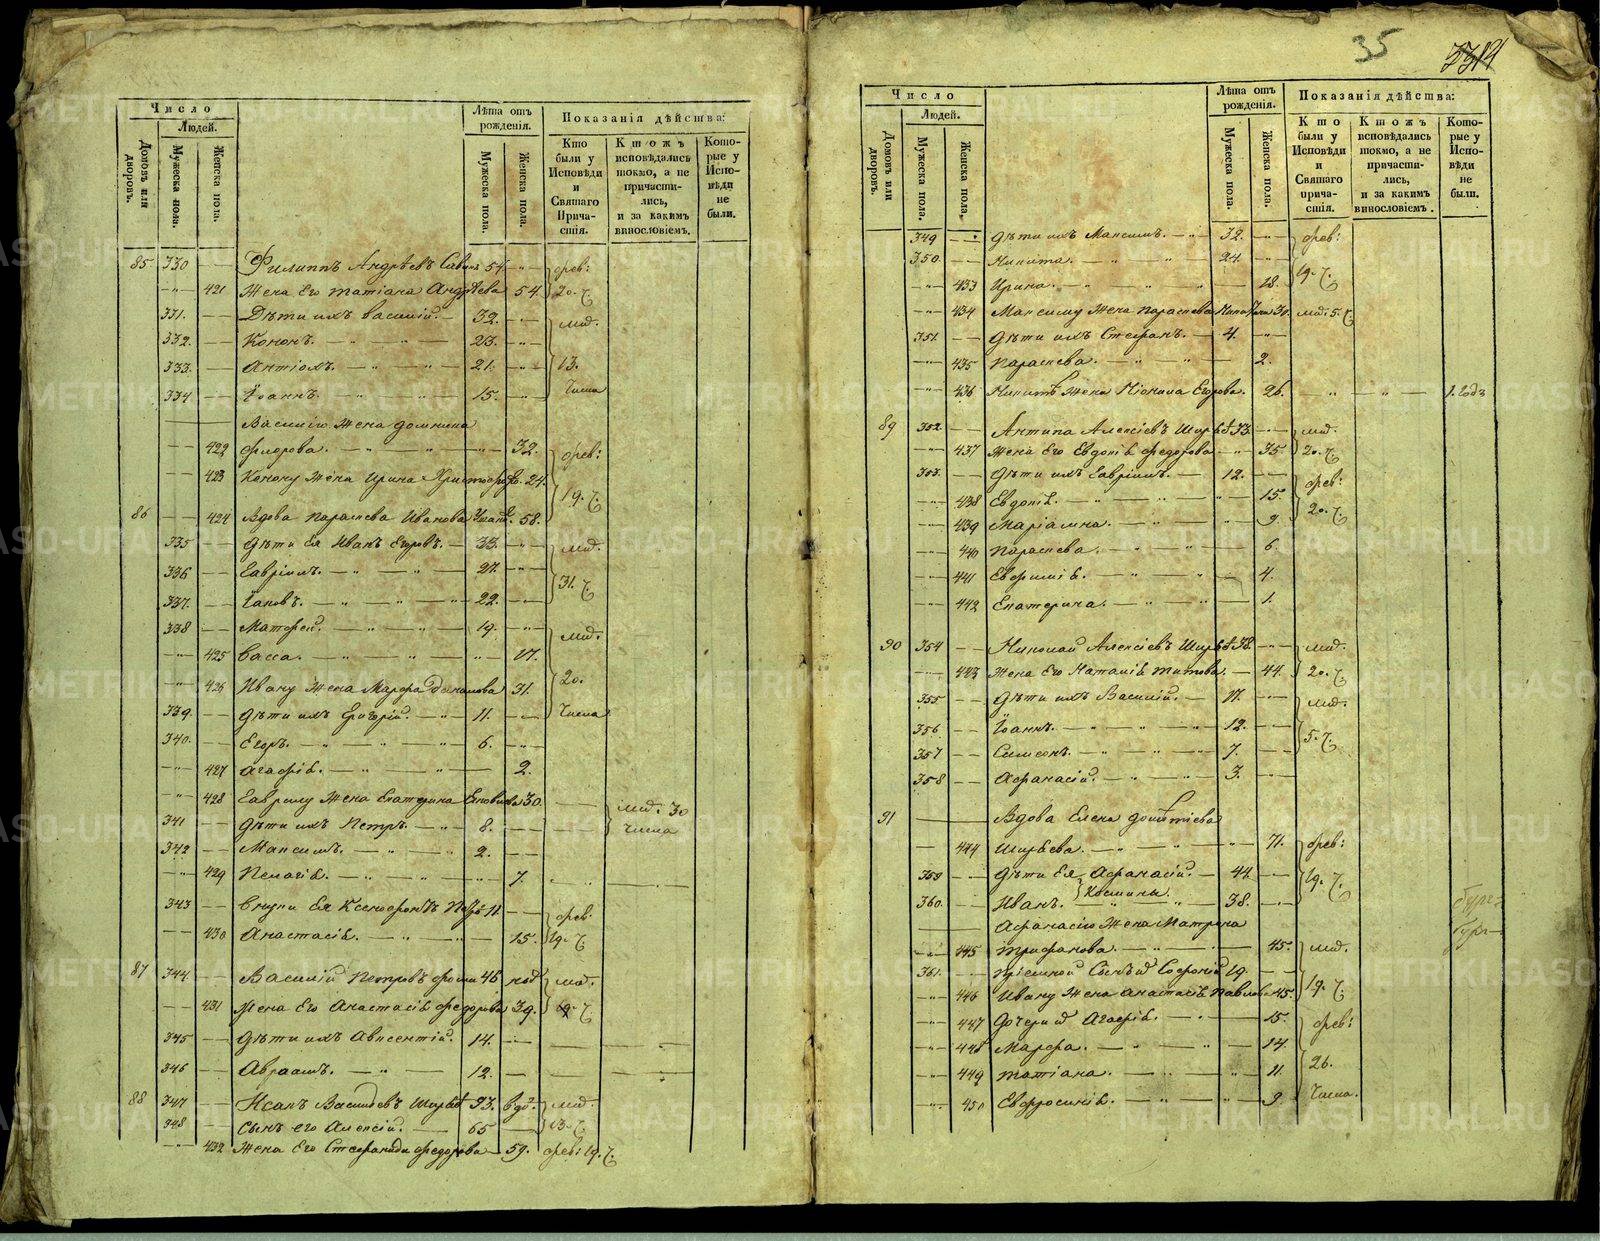 35
Число
Людей.
Домовъ или дворовъ.
Мужеска пола.
Женска пола.
Лѣта отъ рожденія.
Мужеска пола.
Женска пола.
Показанія дѣйства:
Кто были у Исповѣди и Святаго Прича-стія.
Ктожъ исповѣдались токмо, а не причасти-лись, и за какимъ винословіемъ.
Кото-рые у Испо-вѣди не были.
85 330 Филиппъ Андрѣевъ 54 фев:
421 Жена Его Татіана Андрѣева 54 20. ч.
331. Дѣти ихъ Василий. 32.
332. Кононъ. 23.
333. Антіохъ. 21. 13.
334 Іоаннъ. 15. Числа
Василію Жена Домнина
422 Федорова. 32. фев:
423 Конону Жена Ирина 24. 19. ч.
86 424 Вдова Параскева Иванова 58.
335 Дѣти Ея Иванъ Егоровъ. 33.
336 Гавріилъ. 27. 31. ч.
337. Іаковъ. 22.
338 Матфей. 19.
425 Васса. 17.
426 Ивану Жена Марфа 31. 20.
339. Дѣти ихъ Григорій. 11. Числа
340. Егоръ. 6.
427 Агафія. 2.
428 Гаврилу Жена Екатерина 30. 30
341 Дѣти ихъ Петръ. 8. Числа
342 Максимъ. 2.
429 Пелагія. 7.
343 Внуки Ея Ксенофонтъ 11 фев.
430 Анастасія. 15. 19. ч.
87 344 Василий Петровъ 46
431 Жена Его Анастасія Федорова 39. 19. ч.
345 Дѣти ихъ Авксентій. 14.
346 Авраамъ. 12.
88 347 Исакъ Васильевъ 93. вдо.
348 Сынъ его Алексій. 65 13. ч.
432 Жена Его Стефанида Федорова 59. фев: 19. ч.
Число
Людей.
Домовъ или дворовъ.
Мужеска пола.
Женска пола.
Лѣта отъ рожденія.
Мужеска пола.
Женска пола.
Показанія дѣйства:
Кто были у Исповѣди и Святаго прича-стія.
Ктожъ исповѣдались токмо, а не причасти-лись, и за какимъ винословіемъ.
Кото-рые у Испо-вѣди не были.
349 Дѣти ихъ Максимъ. 32. фев:
350 Никита. 24.
433 Ирина. 18. 19. ч.
434 Максиму Жена Параскева 30. 5. ч.
351. Дѣти ихъ Стефанъ. 4.
435 Параскева. 2.
436 Никитѣ Жена Егорова. 26. 1. годъ
89 352. Антипа Алексіевъ 33.
437 Жена Его Евдокія Федорова 35. 20. ч.
353. Дѣти ихъ Гавріилъ. 12. фев:
438 Евдокія. 15. 20. ч.
439 Маріамна. 9.
440 Параскева. 6.
441 Евфимія. 4.
442 Екатерина. 1.
90 354 Николай Алексіевъ 38.
443 Жена Его Наталія Титова. 44. 20. ч.
355 Дѣти ихъ Василій. 17.
356 Іоаннъ. 12. 5. ч.
357 Симеонъ. 7.
358 Афанасій. 3.
91 Вдова Елена
444 71. фев:
359 Дѣти Ея Афанасій. 44. 19. ч.
360. Иванъ. Космины 38.
Афанасію Жена Матрона
445 Трифанова. 45.
361. Пріемной Сынъ Софроній 19.
446 Ивану Жена Анастасія Павлова 45. 19. ч.
447 Дочери Агафія. 15. фев:
448 Марфа. 14.
449 Татіана. 11. 26.
450 Евфросинія. 9. Числа.